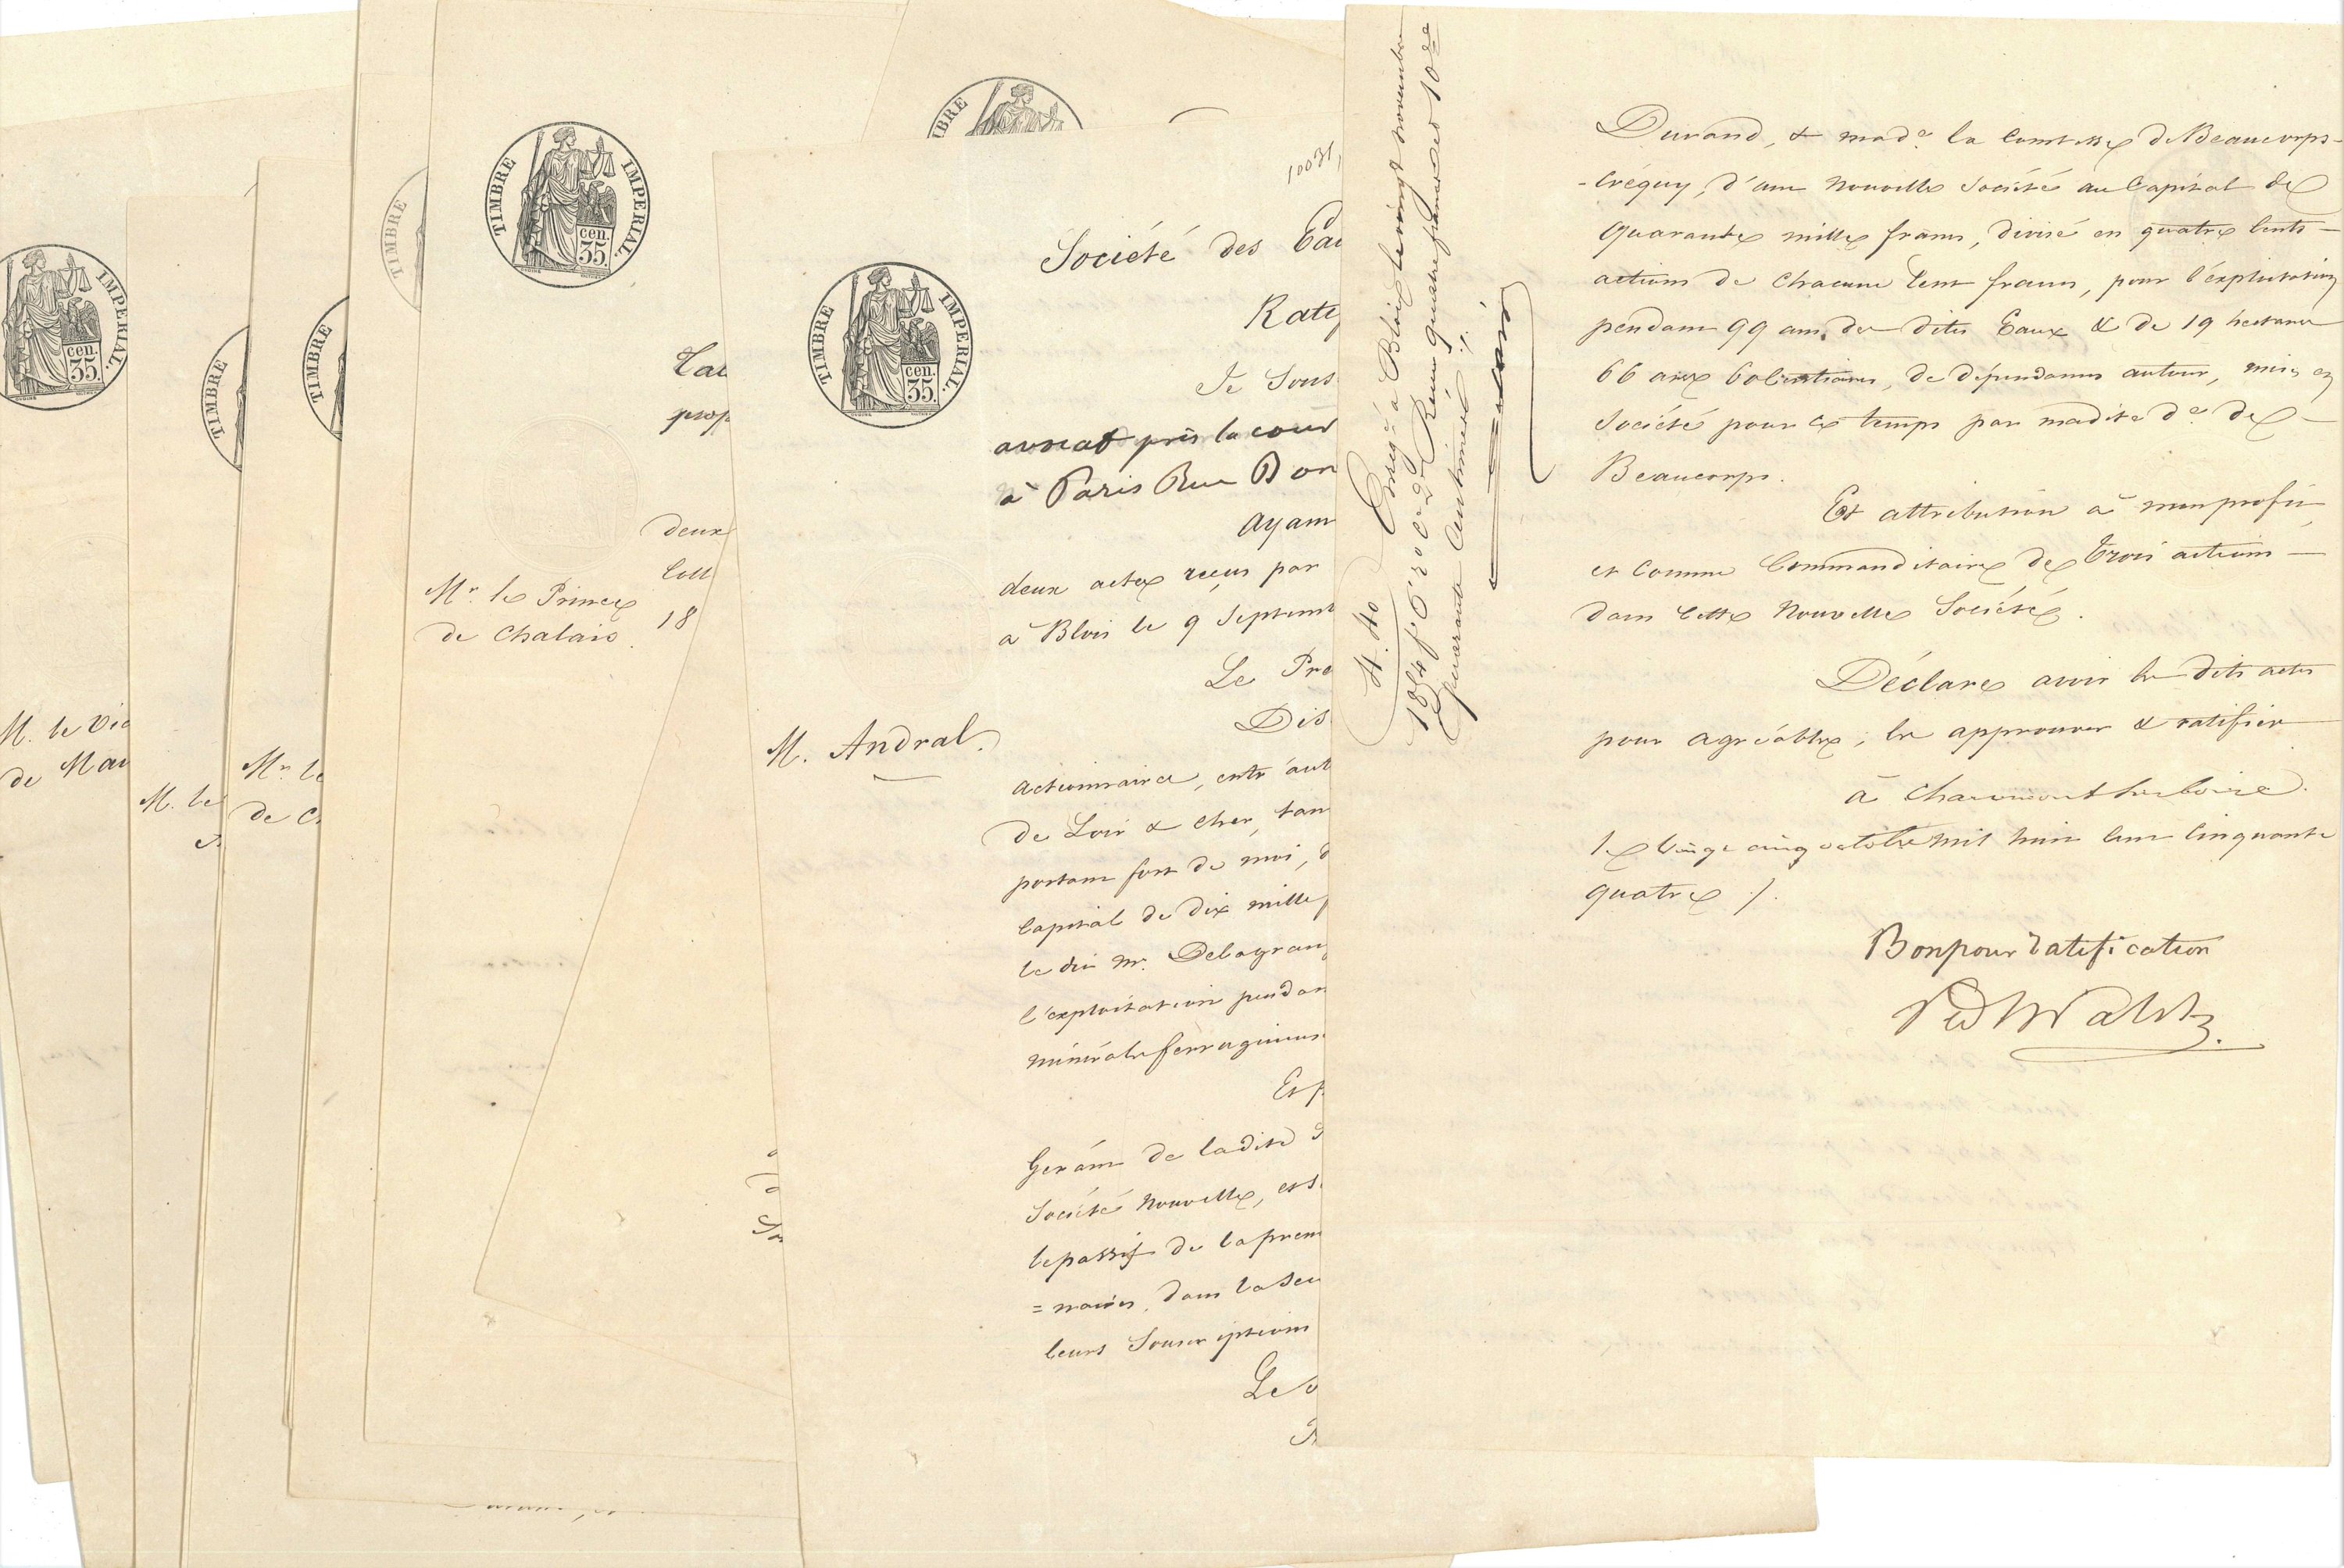 TIMBRE IMPERIAL.
cen. 35.
IMPERIAL.
cen. 35.
TIMBRE
TIMBRE
TIMBRE
M. le Vic
de Mau
M. le
Mr. le
de C
Mr. le Prince
de Chalais.
prop
deux
18
IBRE
TIMBRE IMPERIAL.
cen. 35.
10031,
Société des Eau
Ratif
Je Sous
avocat près la cour
à Paris Rue
Ayant
deux actes reçus par
à Blois le 9 Septemb
Le Pre
Dis
M. Andral.
actionnaires, entr'aut
de Loir & Cher, tan
portant fort de moi,
Capital de dix mille
le dit Mr. Delagran
l'exploitation pendan
minérales ferrugineus
Et p
Gérant de ladite S
Société Nouvelle, et s
le passif de la prem
= naires, dans la Seu
leurs Souscriptions
Le
4.40 Enregé à Blois le vingt novembre
1854 fo 6 ro c. 2 Reçu quatre francs 10me
quarante centimes ./.
Durand, & made la Comtesse de Beaucorps-
-Créquy, d'une Nouvelle Société au Capital de
Quarante mille francs, divisé en quatre cents
actions de Chacune Cent francs, pour l'exploitation
pendant 99 ans, des dites Eaux & de 19 hectares
66 ares 60 Centiares, de dépendances autour, mis en
Société pour ce temps par madite de. de
Beaucorps.
Et attribution à mon profit
et comme Commanditaire de Trois actions
dans cette Nouvelle Société.
Déclare avoir les dits actes
pour agréables, les approuver & ratifier
à Chaumont sur Loire.
le vingt cinq octobre mil huit cent Cinquante
quatre /.
Bon pour ratification
Walsh